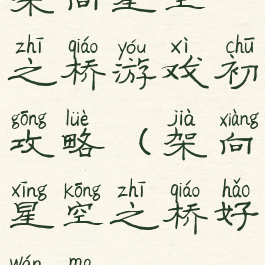 架向星空
zhī qiáo yóu xì chū
之桥游戏初
gōng lüè jià xiàng
攻略（架向
xīng kōng zhī qiáo hǎo
星空之桥好
wán ma